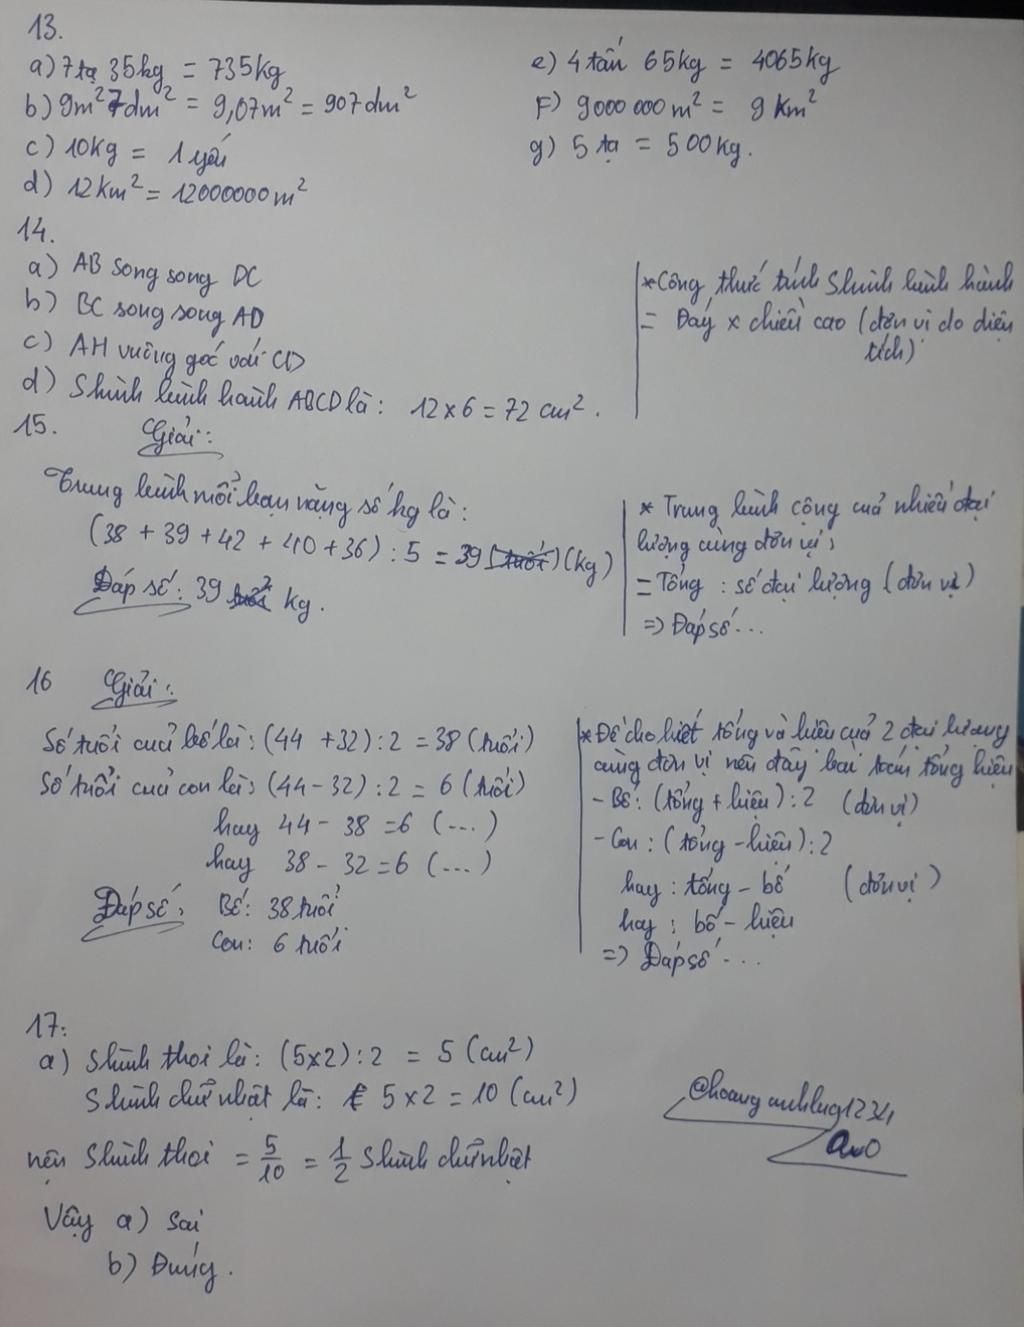 13.
a) 7 tạ 35kg = 735kg
b) 9m² 7dm² = 9,07m² = 907dm²
c) 10kg = 1 yến
d) 12km² = 12000000m²
e) 4 tấn 65kg = 4065kg
F) 9000 000m² = 9 km²
g) 5 tạ = 500kg.
14.
a) AB song song DC
b) BC song song AD
c) AH vuông góc với CD
d) Shình bình hành ABCD là: 12 x 6 = 72 cm².
* Công thức tính Shình bình hành
= Đáy x chiều cao (đơn vị đo diện
tích)
15. Giải:
Trung bình mỗi bạn nặng số kg là:
(38 + 39 + 42 + 40 + 36) : 5 = 39 (tuổi) (kg)
Đáp số: 39 tuổi kg.
* Trung bình cộng của nhiều đại
lượng cùng đơn vị:
= Tổng : số đại lượng (đơn vị)
=> Đáp số...
16 Giải:
Số tuổi của bố là: (44 + 32) : 2 = 38 (tuổi)
Số tuổi của con là: (44 - 32) : 2 = 6 (tuổi)
hay 44 - 38 = 6 (...)
hay 38 - 32 = 6 (...)
Đáp số: Bố: 38 tuổi
Con: 6 tuổi
* Đề cho biết tổng và hiệu của 2 đại lượng
cùng đơn vị nên đây bài toán tổng hiệu
- Bố: (tổng + hiệu) : 2 (đơn vị)
- Con: (tổng - hiệu) : 2
hay : tổng - bố (đơn vị)
hay : bố - hiệu
=> Đáp số...
17:
a) Shình thoi là: (5x2) : 2 = 5 (cm²)
Shình chữ nhật là: 5 x 2 = 10 (cm²)
nên Shình thoi = 5/10 = 1/2 Shình chữ nhật
Vậy a) Sai
b) Đúng.
@hoanganhlug1234